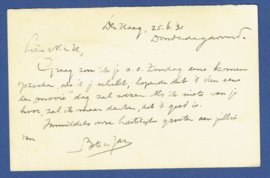 Den Haag, 25.6.31
Donderdagavond.
Graag zou ik j. a.s. Zondag eens komen
opzoeken, als 't je schikt, hopende dat 't dan eens
een mooie dag zal wezen. Als ik niets van je
hoor, zal ik maar denken, dat 't goed is.
Inmiddels onze hartelijke groeten aan jullie
van